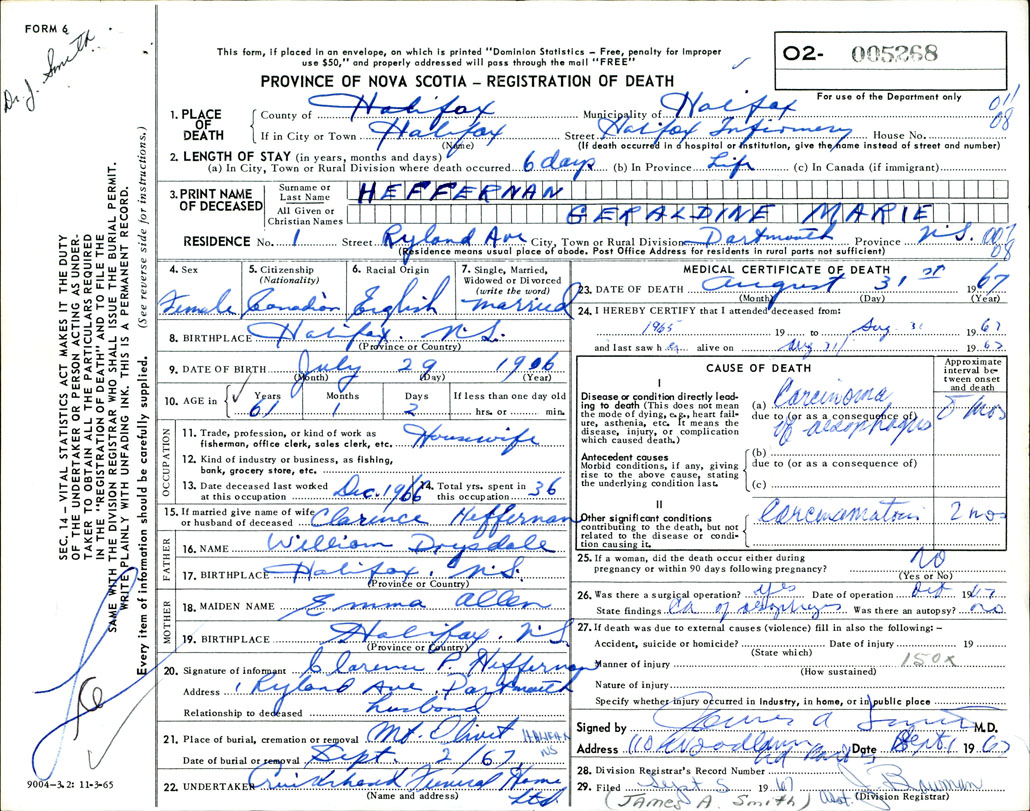 FORM 6
Dr. J. Smith
This form, if placed in an envelope, on which is printed "Dominion Statistics – Free, penalty for improper
use $50," and properly addressed will pass through the mail "FREE"
PROVINCE OF NOVA SCOTIA – REGISTRATION OF DEATH
O2- 005268
For use of the Department only
011
08
1. PLACE OF DEATH
County of Halifax Municipality of Halifax
If in City or Town Halifax Street Halifax Infirmary House No.
(Name) (If death occurred in a hospital or institution, give the name instead of street and number)
2. LENGTH OF STAY (in years, months and days)
(a) In City, Town or Rural Division where death occurred 6 days (b) In Province Life (c) In Canada (if immigrant)
3. PRINT NAME OF DECEASED
Surname or Last Name HEFFERNAN
All Given or Christian Names GERALDINE MARIE
RESIDENCE No. 1 Street Ryland Ave City, Town or Rural Division Dartmouth Province N.S.
08
(Residence means usual place of abode. Post Office Address for residents in rural parts not sufficient)
4. Sex Female
5. Citizenship (Nationality) Canadian
6. Racial Origin English
7. Single, Married, Widowed or Divorced (write the word) married
8. BIRTHPLACE Halifax. N.S.
(Province or Country)
9. DATE OF BIRTH July 29 1906
(Month) (Day) (Year)
10. AGE in Years 61 Months 1 Days 2 If less than one day old hrs. or min.
OCCUPATION
11. Trade, profession, or kind of work as fisherman, office clerk, sales clerk, etc. Housewife
12. Kind of industry or business, as fishing, bank, grocery store, etc.
13. Date deceased last worked at this occupation Dec. 1966 14. Total yrs. spent in this occupation 36
15. If married give name of wife or husband of deceased Clarence Heffernan
FATHER
16. NAME William Drysdale
17. BIRTHPLACE Halifax. N.S.
(Province or Country)
MOTHER
18. MAIDEN NAME Emma Allen
19. BIRTHPLACE Halifax. N.S.
(Province or Country)
20. Signature of informant Clarence P. Heffernan
Address 1 Ryland Ave, Dartmouth
Relationship to deceased husband
21. Place of burial, cremation or removal Mt. Olivet HALIFAX NS
Date of burial or removal Sept. 2/67
22. UNDERTAKER Funeral Home Ltd.
(Name and address)
MEDICAL CERTIFICATE OF DEATH
23. DATE OF DEATH August 31st 1967
(Month) (Day) (Year)
24. I HEREBY CERTIFY that I attended deceased from:
1965 19 to Aug. 31 1967
and last saw her alive on Aug 31/ 1967
CAUSE OF DEATH
Approximate interval between onset and death
I
Disease or condition directly leading to death (This does not mean the mode of dying, e.g., heart failure, asthenia, etc. It means the disease, injury, or complication which caused death.)
(a) Carcinoma of aesophagus 8 mos
due to (or as a consequence of)
Antecedent causes
Morbid conditions, if any, giving rise to the above cause, stating the underlying condition last.
(b)
due to (or as a consequence of)
(c)
II
Other significant conditions contributing to the death, but not related to the disease or condition causing it.
2 mos
25. If a woman, did the death occur either during pregnancy or within 90 days following pregnancy? NO
(Yes or No)
26. Was there a surgical operation? yes Date of operation 1967
State findings Ca of Was there an autopsy? no
27. If death was due to external causes (violence) fill in also the following: –
Accident, suicide or homicide? Date of injury 19
(State which)
Manner of injury 150x
(How sustained)
Nature of injury
Specify whether injury occurred in Industry, in home, or in public place
Signed by James A Smith M.D.
Address 110 Woodlawn Rd Date Sept 1 1967
28. Division Registrar's Record Number
29. Filed Sept 5 1967 J. Bauman
(Division Registrar)
(JAMES A. Smith)
SEC. 14 – VITAL STATISTICS ACT MAKES IT THE DUTY
OF THE UNDERTAKER OR PERSON ACTING AS UNDER-
TAKER TO OBTAIN ALL THE PARTICULARS REQUIRED
IN THE "REGISTRATION OF DEATH" AND TO FILE THE
SAME WITH THE DIVISION REGISTRAR WHO SHALL ISSUE THE BURIAL PERMIT.
WRITE PLAINLY WITH UNFADING INK. THIS IS A PERMANENT RECORD.
Every item of information should be carefully supplied. (See reverse side for instructions.)
9004-3.2: 11-3-65